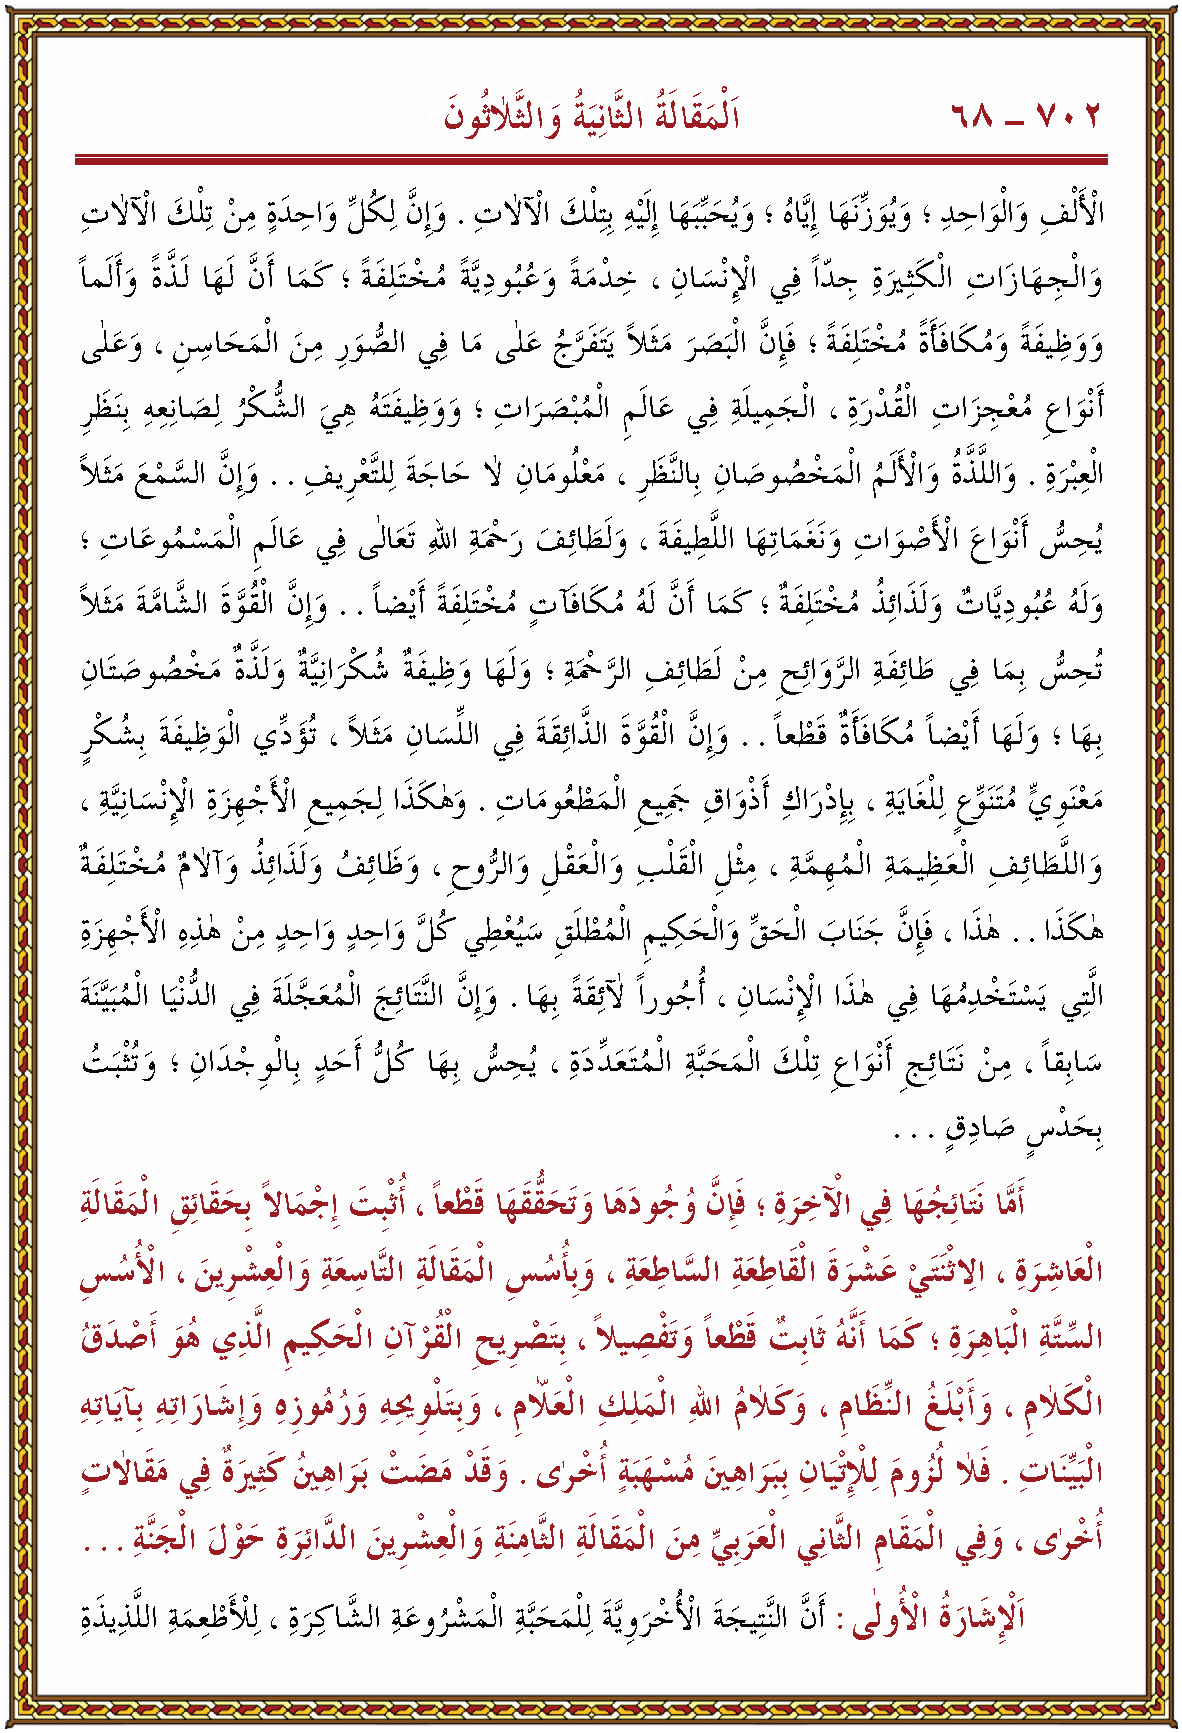 ٧٠٢ – ٦٨ اَلْمَقَالَةُ الثَّانِيَةُ وَالثَّلاٰثُونَ
الْأَلْفِ وَالْوَاحِدِ ؛ وَيُوَزِّنَهَا إِيَّاهُ ؛ وَيُحَبِّبَهَا إِلَيْهِ بِتِلْكَ الْآلاٰتِ . وَإِنَّ لِكُلِّ وَاحِدَةٍ مِنْ تِلْكَ الْآلاٰتِ
وَالْجِهَازَاتِ الْكَثِيرَةِ جِدّاً فِي الْإِنْسَانِ ، خِدْمَةً وَعُبُودِيَّةً مُخْتَلِفَةً ؛ كَمَا أَنَّ لَهَا لَذَّةً وَأَلَماً
وَوَظِيفَةً وَمُكَافَأَةً مُخْتَلِفَةً ؛ فَإِنَّ الْبَصَرَ مَثَلاً يَتَفَرَّجُ عَلٰى مَا فِي الصُّوَرِ مِنَ الْمَحَاسِنِ ، وَعَلٰى
أَنْوَاعِ مُعْجِزَاتِ الْقُدْرَةِ ، الْجَمِيلَةِ فِي عَالَمِ الْمُبْصَرَاتِ ؛ وَوَظِيفَتُهُ هِيَ الشُّكْرُ لِصَانِعِهِ بِنَظَرِ
الْعِبْرَةِ . وَاللَّذَّةُ وَالْأَلَمُ الْمَخْصُوصَانِ بِالنَّظَرِ ، مَعْلُومَانِ لاٰ حَاجَةَ لِلتَّعْرِيفِ . . وَإِنَّ السَّمْعَ مَثَلاً
يُحِسُّ أَنْوَاعَ الْأَصْوَاتِ وَنَغَمَاتِهَا اللَّطِيفَةَ ، وَلَطَائِفَ رَحْمَةِ اللهِ تَعَالٰى فِي عَالَمِ الْمَسْمُوعَاتِ ؛
وَلَهُ عُبُودِيَّاتٌ وَلَذَائِذُ مُخْتَلِفَةٌ ؛ كَمَا أَنَّ لَهُ مُكَافَآتٍ مُخْتَلِفَةً أَيْضاً . . وَإِنَّ الْقُوَّةَ الشَّامَّةَ مَثَلاً
تُحِسُّ بِمَا فِي طَائِفَةِ الرَّوَائِحِ مِنْ لَطَائِفِ الرَّحْمَةِ ؛ وَلَهَا وَظِيفَةٌ شُكْرَانِيَّةٌ وَلَذَّةٌ مَخْصُوصَتَانِ
بِهَا ؛ وَلَهَا أَيْضاً مُكَافَأَةٌ قَطْعاً . . وَإِنَّ الْقُوَّةَ الذَّائِقَةَ فِي اللِّسَانِ مَثَلاً ، تُؤَدِّي الْوَظِيفَةَ بِشُكْرٍ
مَعْنَوِيٍّ مُتَنَوِّعٍ لِلْغَايَةِ ، بِإِدْرَاكِ أَذْوَاقِ جَمِيعِ الْمَطْعُومَاتِ . وَهٰكَذَا لِجَمِيعِ الْأَجْهِزَةِ الْإِنْسَانِيَّةِ ،
وَاللَّطَائِفِ الْعَظِيمَةِ الْمُهِمَّةِ ، مِثْلِ الْقَلْبِ وَالْعَقْلِ وَالرُّوحِ ، وَظَائِفُ وَلَذَائِذُ وَآلاٰمٌ مُخْتَلِفَةٌ
هٰكَذَا . . هٰذَا ، فَإِنَّ جَنَابَ الْحَقِّ وَالْحَكِيمِ الْمُطْلَقِ سَيُعْطِي كُلَّ وَاحِدٍ وَاحِدٍ مِنْ هٰذِهِ الْأَجْهِزَةِ
الَّتِي يَسْتَخْدِمُهَا فِي هٰذَا الْإِنْسَانِ ، أُجُوراً لاٰئِقَةً بِهَا . وَإِنَّ النَّتَائِجَ الْمُعَجَّلَةَ فِي الدُّنْيَا الْمُبَيَّنَةَ
سَابِقاً ، مِنْ نَتَائِجِ أَنْوَاعِ تِلْكَ الْمَحَبَّةِ الْمُتَعَدِّدَةِ ، يُحِسُّ بِهَا كُلُّ أَحَدٍ بِالْوِجْدَانِ ؛ وَتُثْبَتُ
بِحَدْسٍ صَادِقٍ . . .
أَمَّا نَتَائِجُهَا فِي الْآخِرَةِ ؛ فَإِنَّ وُجُودَهَا وَتَحَقُّقَهَا قَطْعاً ، أُثْبِتَ إِجْمَالاً بِحَقَائِقِ الْمَقَالَةِ
الْعَاشِرَةِ ، الِاثْنَتَيْ عَشْرَةَ الْقَاطِعَةِ السَّاطِعَةِ ، وَبِأُسُسِ الْمَقَالَةِ التَّاسِعَةِ وَالْعِشْرِينَ ، الْأُسُسِ
السِّتَّةِ الْبَاهِرَةِ ؛ كَمَا أَنَّهُ ثَابِتٌ قَطْعاً وَتَفْصِيلاً ، بِتَصْرِيحِ الْقُرْآنِ الْحَكِيمِ الَّذِي هُوَ أَصْدَقُ
الْكَلاٰمِ ، وَأَبْلَغُ النِّظَامِ ، وَكَلاٰمُ اللهِ الْمَلِكِ الْعَلاَّمِ ، وَبِتَلْوِيحِهِ وَرُمُوزِهِ وَإِشَارَاتِهِ بِآيَاتِهِ
الْبَيِّنَاتِ . فَلاٰ لُزُومَ لِلْإِتْيَانِ بِبَرَاهِينَ مُسْهَبَةٍ أُخْرٰى . وَقَدْ مَضَتْ بَرَاهِينُ كَثِيرَةٌ فِي مَقَالاٰتٍ
أُخْرٰى ، وَفِي الْمَقَامِ الثَّانِي الْعَرَبِيِّ مِنَ الْمَقَالَةِ الثَّامِنَةِ وَالْعِشْرِينَ الدَّائِرَةِ حَوْلَ الْجَنَّةِ . . .
اَلْإِشَارَةُ الْأُولٰى : أَنَّ النَّتِيجَةَ الْأُخْرَوِيَّةَ لِلْمَحَبَّةِ الْمَشْرُوعَةِ الشَّاكِرَةِ ، لِلْأَطْعِمَةِ اللَّذِيذَةِ